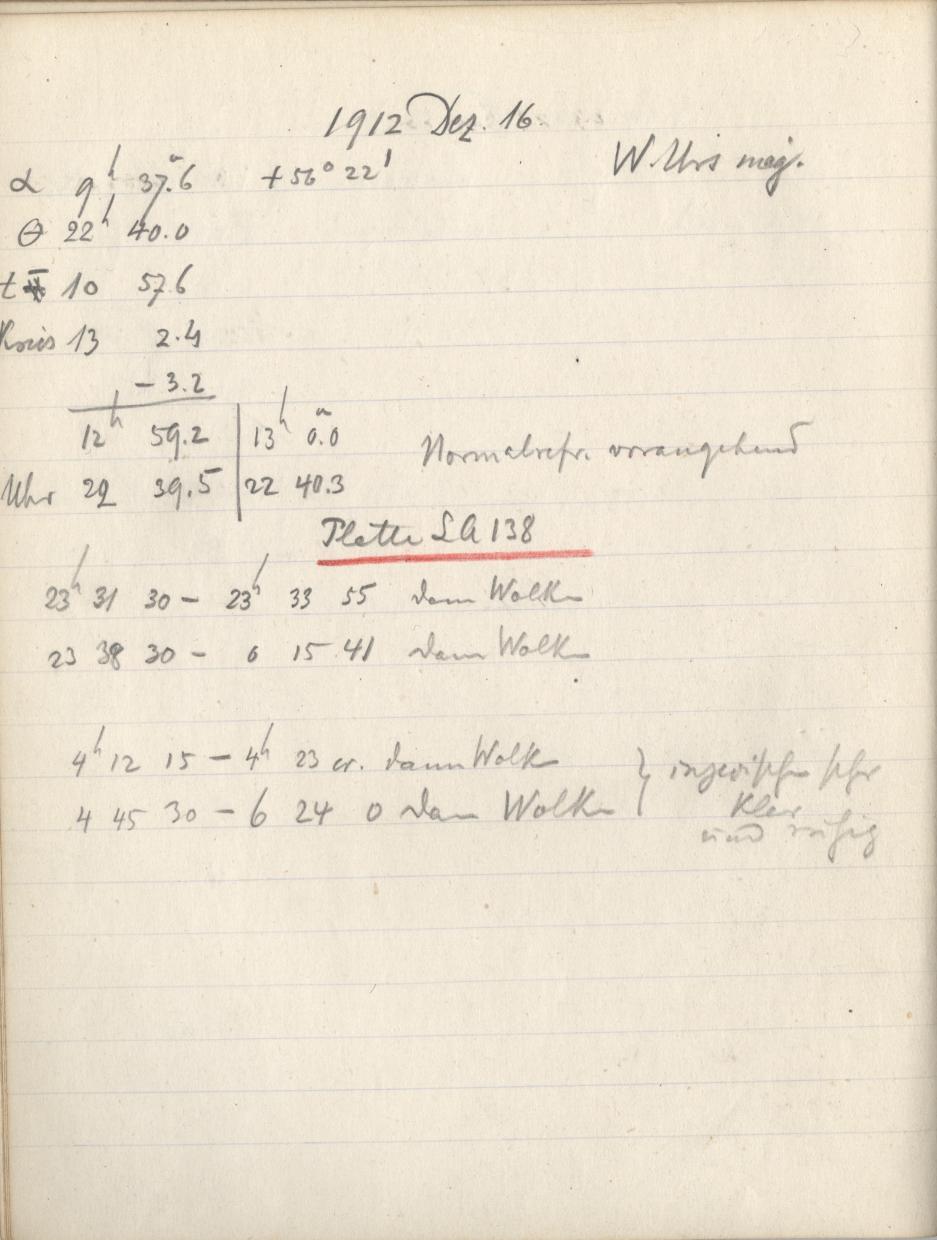 1912 Dez. 16.
W. Urs maj.
α 9h 37.m6 +56° 22'
Θ 22h 40.0
t 10 57.6
Kreis 13 2.4
- 3.2
12h 59.2 | 13h 0.m0
Normalrefr. vorangehend
Uhr 22 39.5 | 22 40.3
Platte LA 138
23h 31 30 - 23h 33 55 dann Wolken
23 38 30 - 0 15 41 dann Wolken
4h 12 15 - 4h 23 cr. dann Wolken
4 45 30 - 6 24 0 dann Wolken
} inzwischen sehr
klar
und ruhig